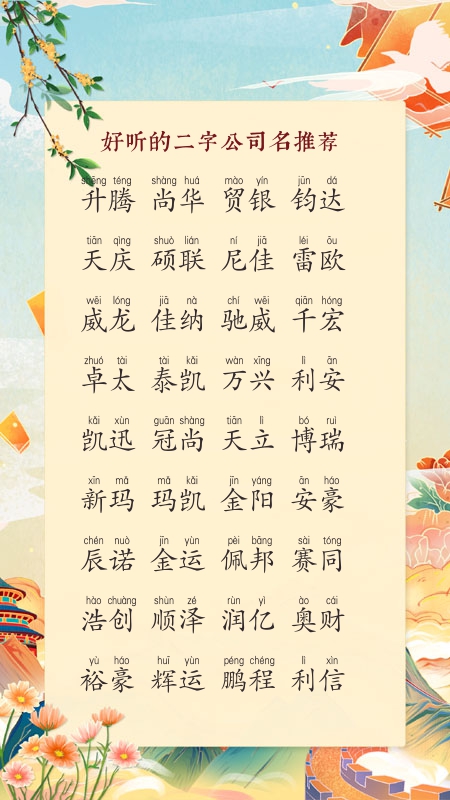 好听的二字公司名推荐
shēng téng shàng huá mào yín jūn dá
升腾 尚华 贸银 钧达
tiān qìng shuò lián ní jiā léi ōu
天庆 硕联 尼佳 雷欧
wēi lóng jiā nà chí wēi qiān hóng
威龙 佳纳 驰威 千宏
zhuó tài tài kǎi wàn xīng lì ān
卓太 泰凯 万兴 利安
kǎi xùn guān shàng tiān lì bó ruì
凯迅 冠尚 天立 博瑞
xīn mǎ mǎ kǎi jīn yáng ān háo
新玛 玛凯 金阳 安豪
chén nuò jīn yùn pèi bāng sài tóng
辰诺 金运 佩邦 赛同
hào chuàng shùn zé rùn yì ào cái
浩创 顺泽 润亿 奥财
yù háo huī yùn péng chéng lì xìn
裕豪 辉运 鹏程 利信